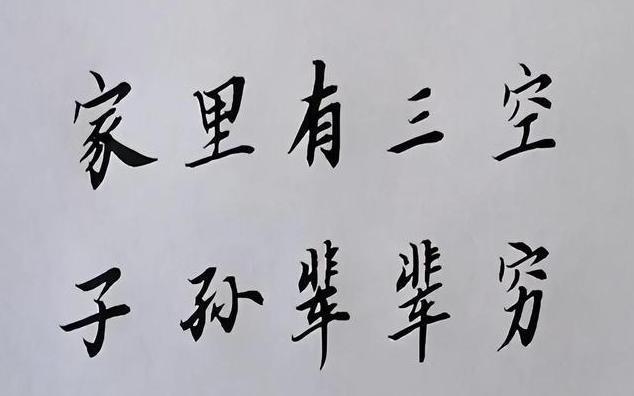 家里有三空
子孙辈辈穷